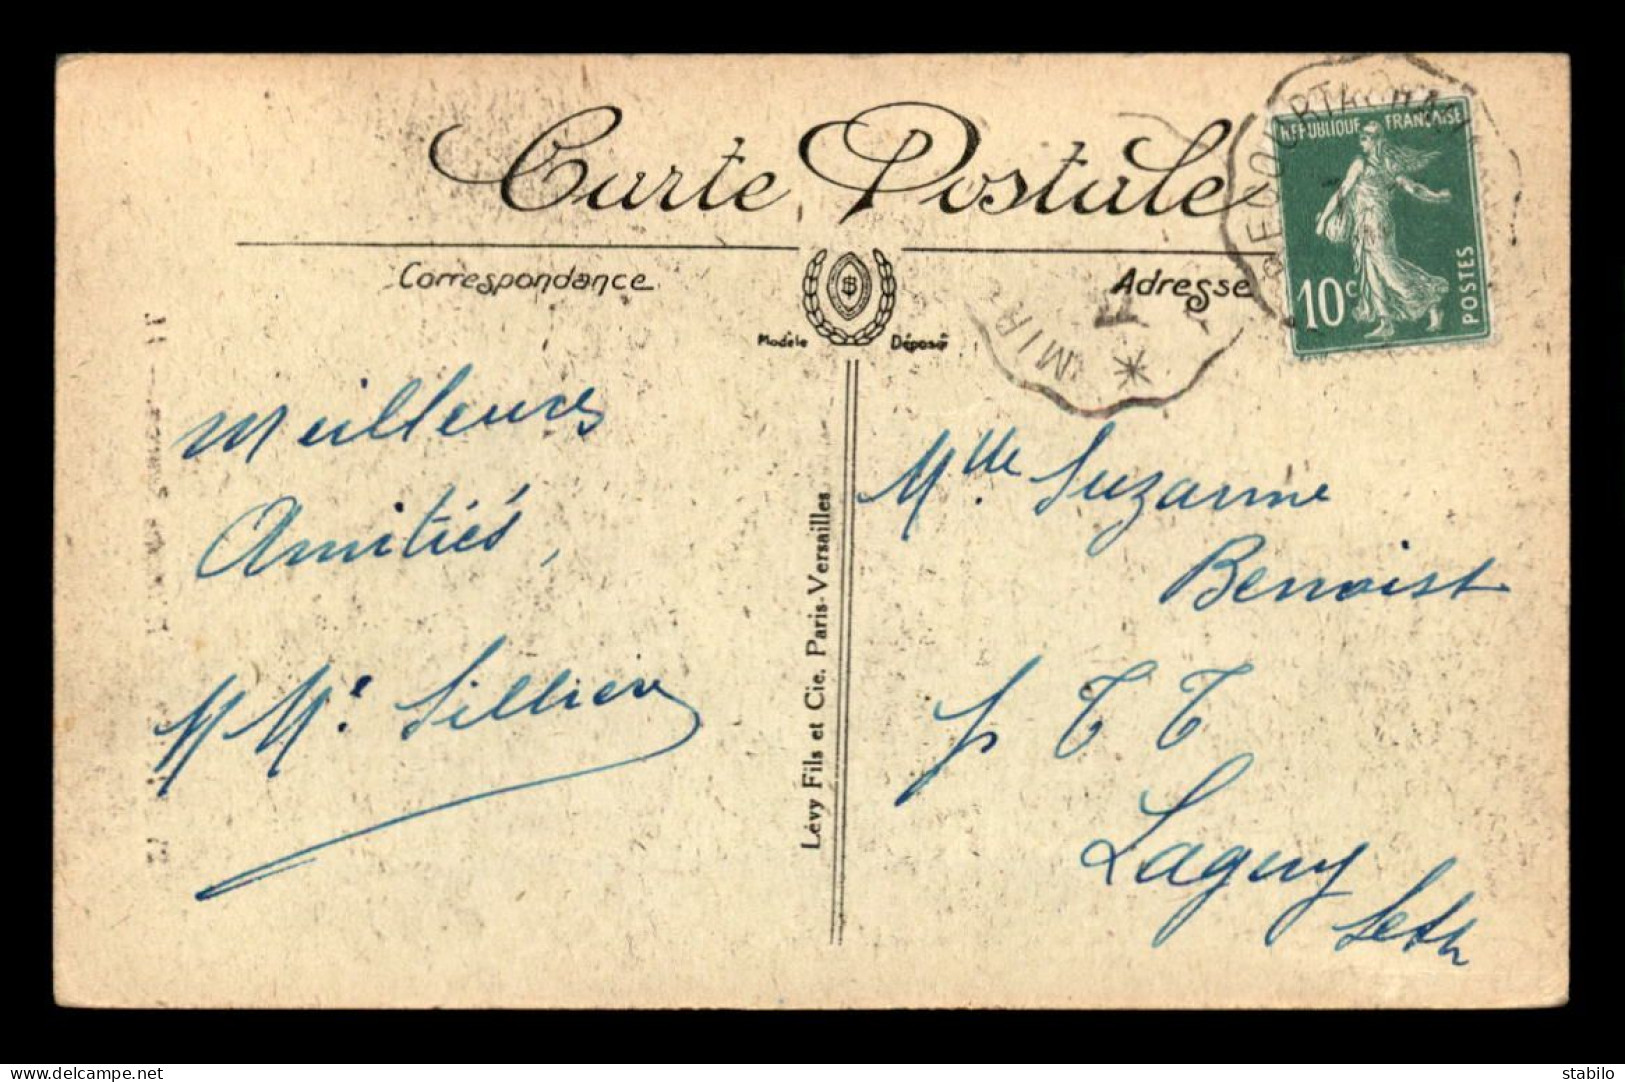 Carte Postale
Correspondance
Adresse
Modèle Déposé
RÉPUBLIQUE FRANÇAISE
10c
POSTES
MIR
Meilleures
Amitiés,
Lévy Fils et Cie. Paris-Versailles
Mlle Suzanne
Benoist
PTT
Lagny
SetM
delcampe.net
stabilo